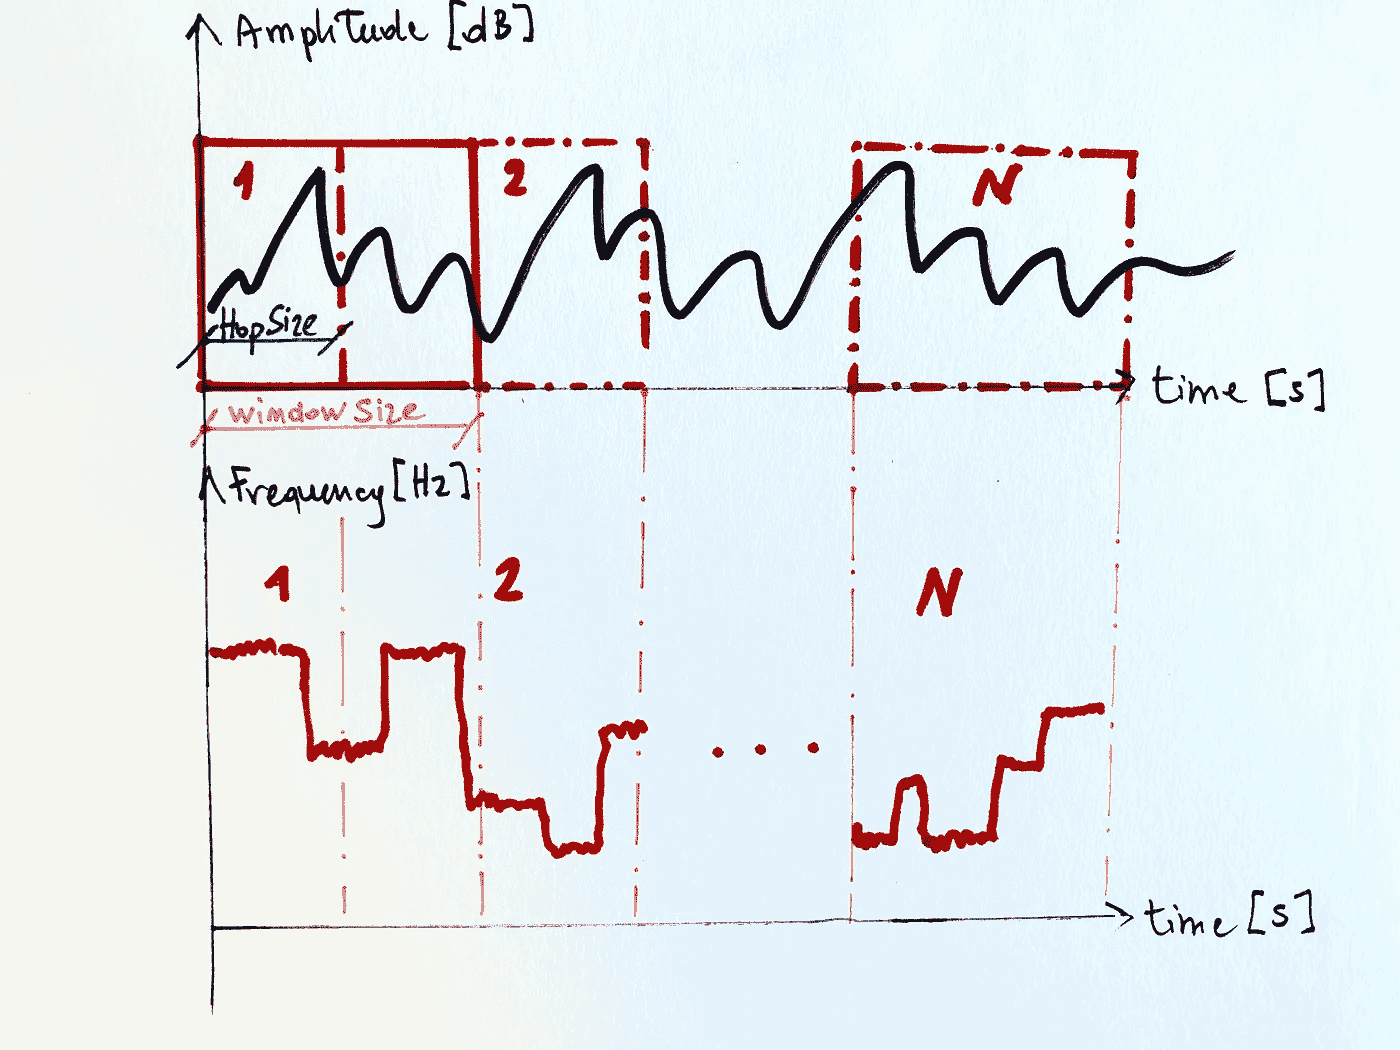 Amplitude [dB]
1
2
N
HopSize
time [s]
Window Size
Frequency [Hz]
1
2
N
time [s]